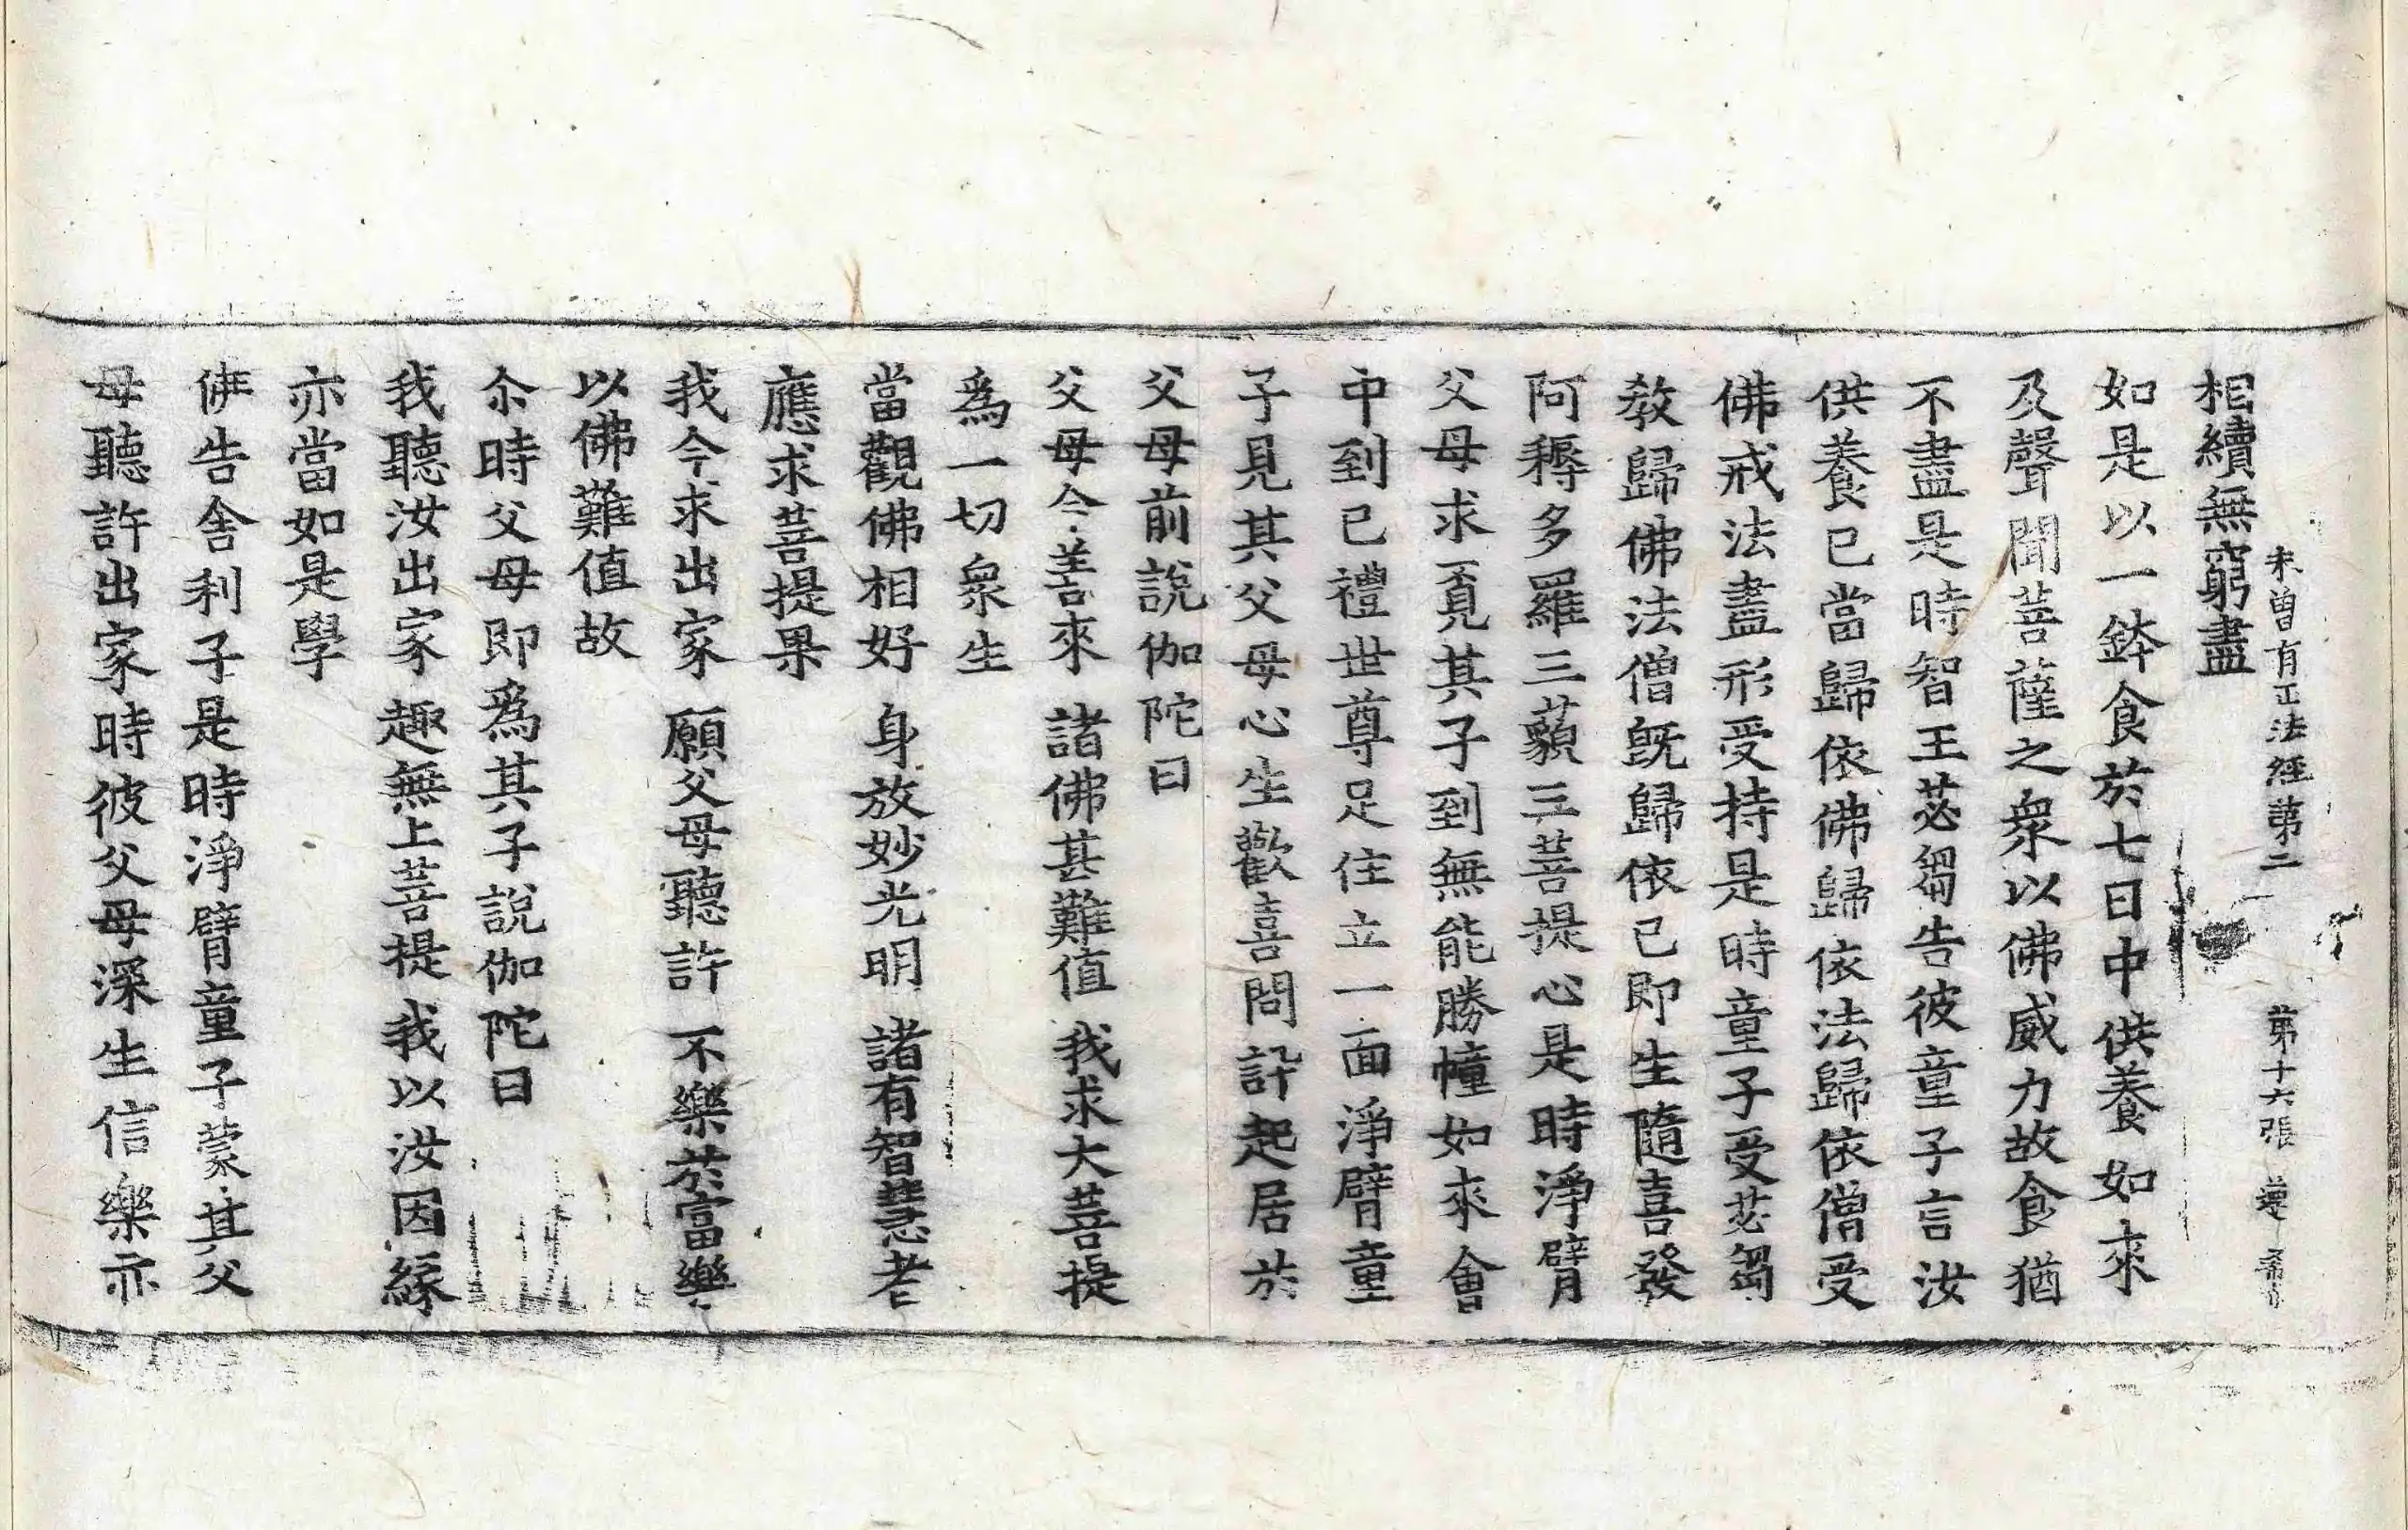 未曾有正法經第二 第十六張 遵
相續無窮盡
如是以一鉢食於七日中供養如來
及聲聞菩薩之衆以佛威力故食猶
不盡是時智王苾芻告彼童子言汝
供養已當歸依佛歸依法歸依僧受
佛戒法盡形受持是時童子受苾芻
敎歸佛法僧旣歸依已即生隨喜發
阿耨多羅三藐三菩提心是時淨臂
父母求覓其子到無能勝幢如來會
中到已禮世尊足住立一面淨臂童
子見其父母心生歡喜問訊起居於
父母前說伽陀曰
父母今善來 諸佛甚難值 我求大菩提
爲一切衆生
當觀佛相好 身放妙光明 諸有智慧者
應求菩提果
我今求出家 願父母聽許 不樂於富樂
以佛難值故
尒時父母即爲其子說伽陀曰
我聽汝出家 趣無上菩提 我以汝因緣
亦當如是學
佛告舍利子是時淨臂童子蒙其父
母聽許出家時彼父母深生信樂亦